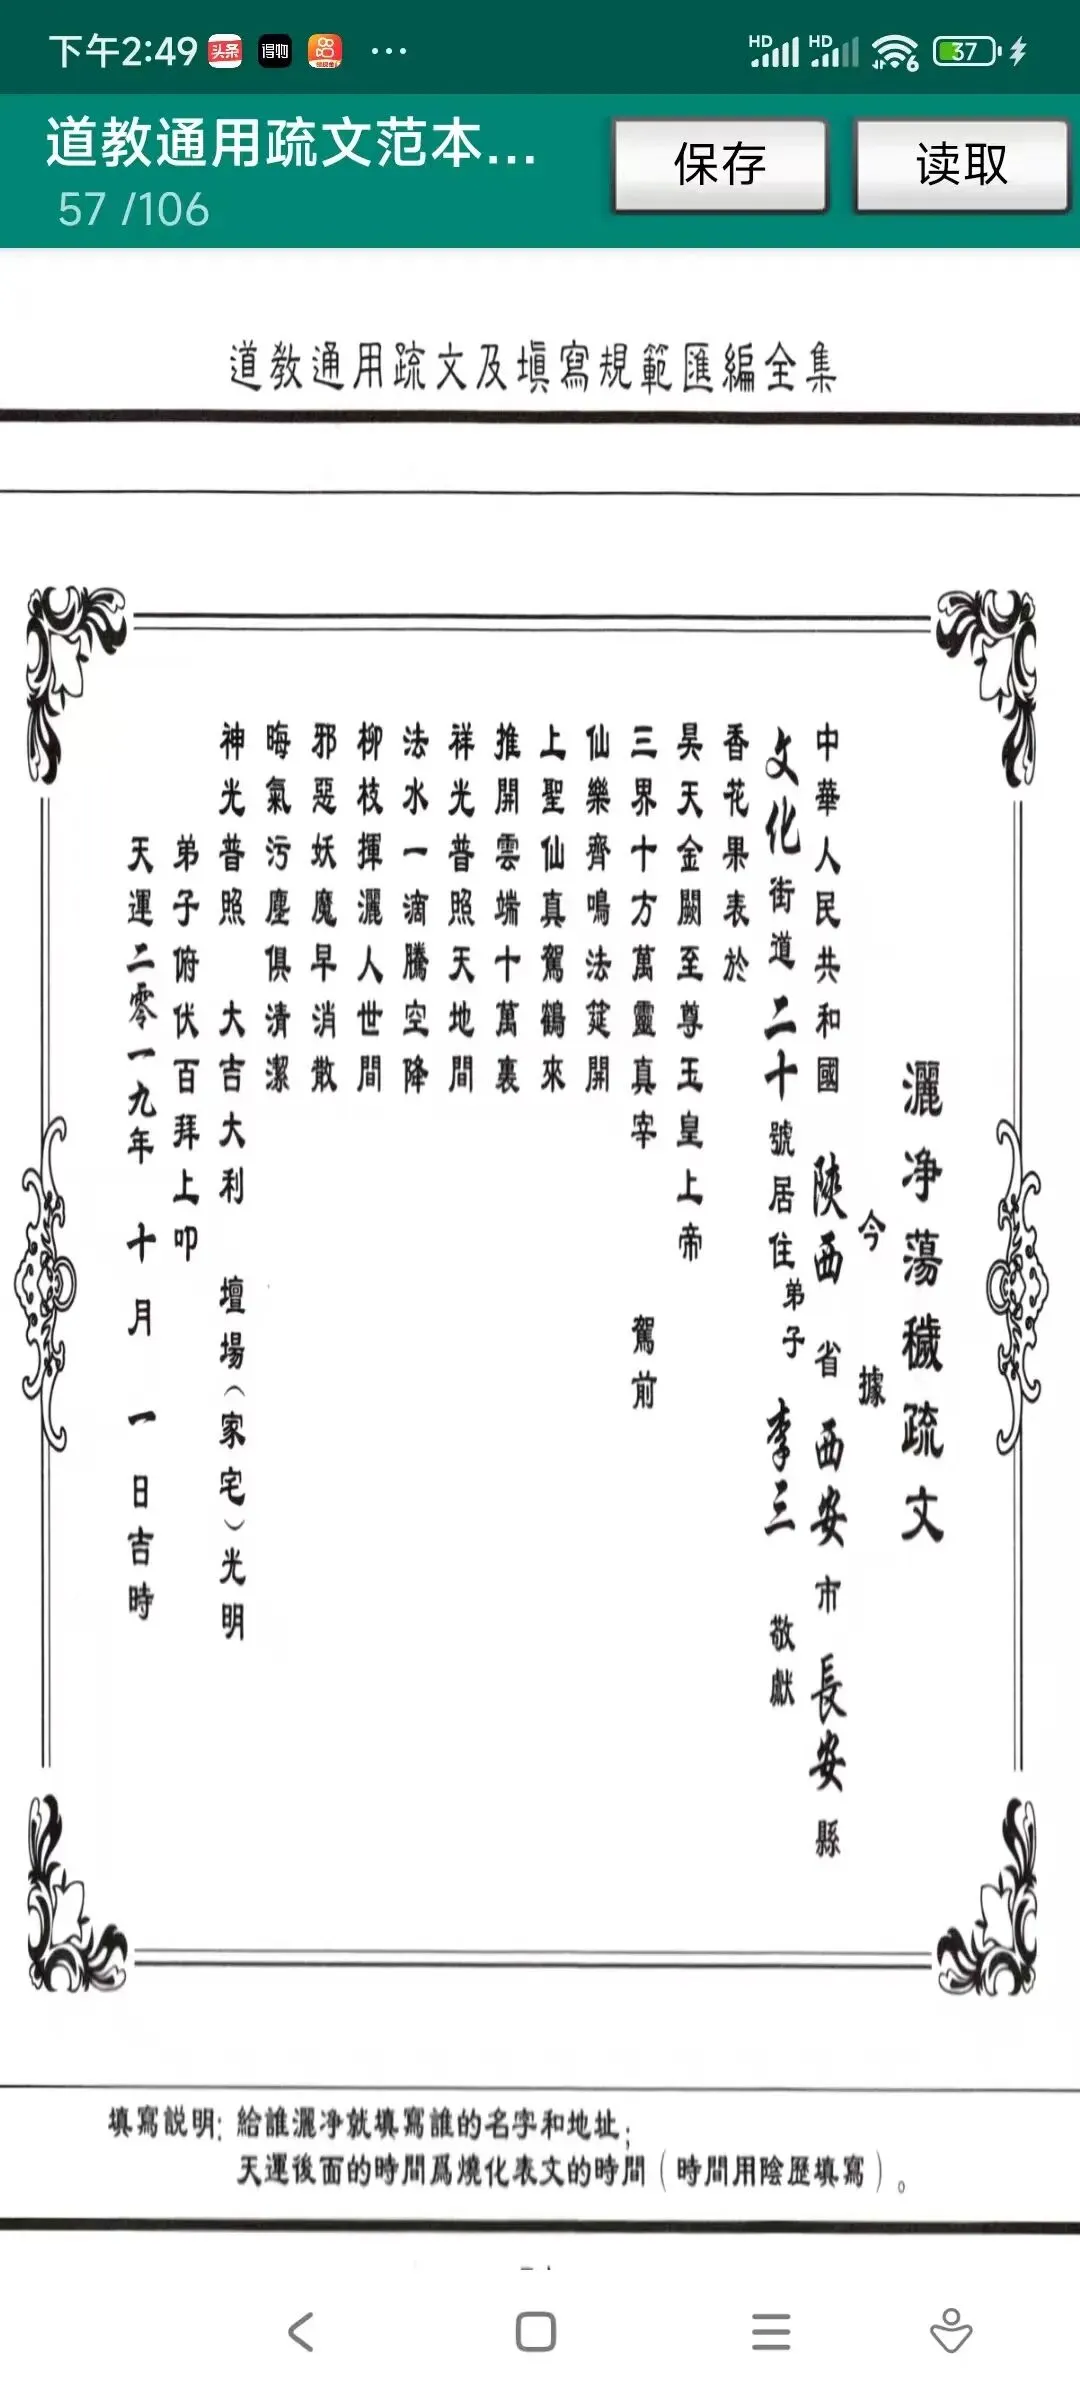 下午2:49 头条 得物 ... HD HD 6 37
道教通用疏文范本...
57 /106
保存
读取
道教通用疏文及填寫規範匯編全集
灑净蕩穢疏文
今 據
中華人民共和國 陝西 省 西安 市 長安 縣
文化 街道 二十 號居住 弟子 李三 敬獻
香花果表於
昊天金闕至尊玉皇上帝
三界十方萬靈真宰 駕前
仙樂齊鳴法筵開
上聖仙真駕鶴來
推開雲端十萬裏
祥光普照天地間
法水一滴騰空降
柳枝揮灑人世間
邪惡妖魔早消散
晦氣污塵俱清潔
神光普照 大吉大利 壇場(家宅)光明
弟子俯伏百拜上叩
天運二零一九年 十 月 一 日吉時
填寫説明: 給誰灑净就填寫誰的名字和地址;
天運後面的時間爲燒化表文的時間(時間用陰歷填寫)。